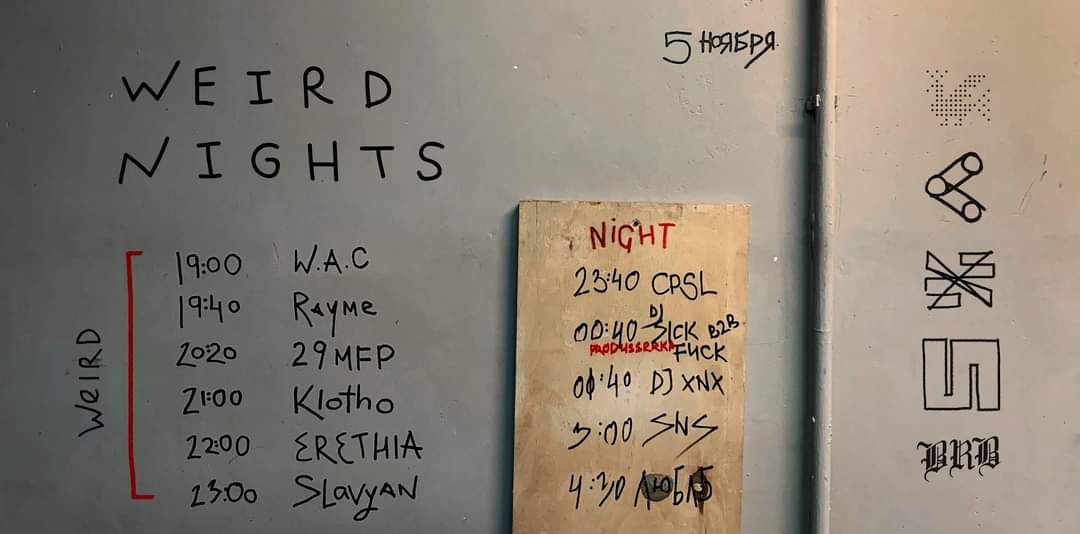 5 НОЯБРЯ
WEIRD
NIGHTS
WEIRD
19:00 W.A.C
19:40 RAYME
20:20 29MFP
21:00 Klotho
22:00 ERETHIA
23:00 SLAVYAN
NIGHT
23:40 CPSL
DJ
00:40 SICK B2B
PRODUSSERKA FUCK
01:40 DJ XNX
3:00 SNS
4:30
BRB